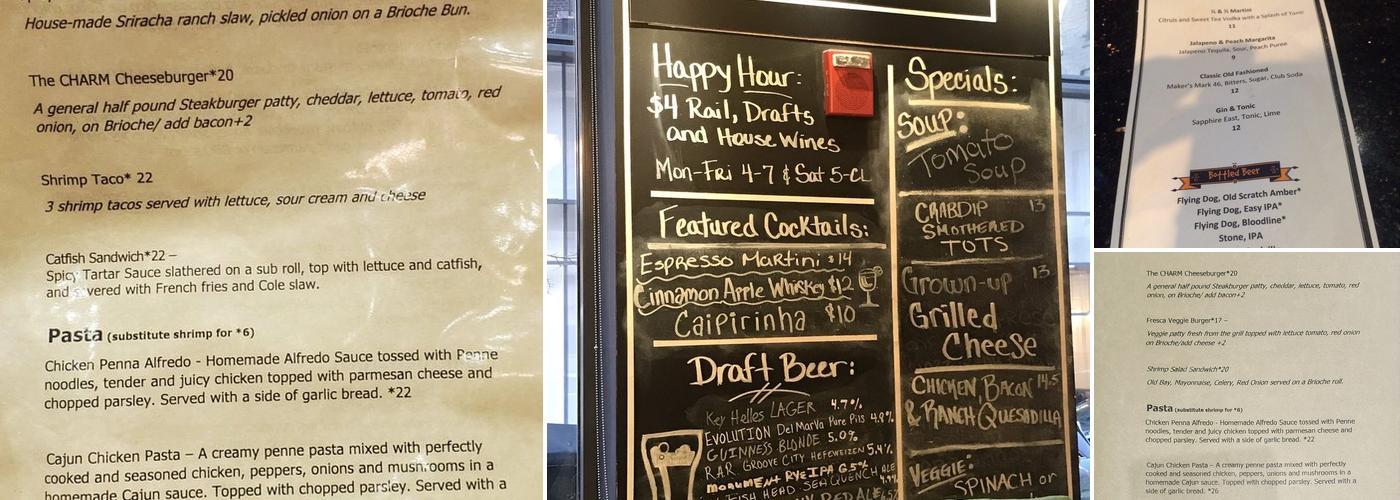 House-made Sriracha ranch slaw, pickled onion on a Brioche Bun.
The CHARM Cheeseburger*20
A general half pound Steakburger patty, cheddar, lettuce, tomato, red
onion, on Brioche/ add bacon+2
Shrimp Taco* 22
3 shrimp tacos served with lettuce, sour cream and cheese
Catfish Sandwich*22 –
Spicy Tartar Sauce slathered on a sub roll, top with lettuce and catfish,
and served with French fries and Cole slaw.
Pasta (substitute shrimp for *6)
Chicken Penna Alfredo - Homemade Alfredo Sauce tossed with Penne
noodles, tender and juicy chicken topped with parmesan cheese and
chopped parsley. Served with a side of garlic bread. *22
Cajun Chicken Pasta – A creamy penne pasta mixed with perfectly
cooked and seasoned chicken, peppers, onions and mushrooms in a
homemade Cajun sauce. Topped with chopped parsley. Served with a
Happy Hour:
$4 Rail, Drafts
and House Wines
Mon-Fri 4-7 & Sat 5-CL
Featured Cocktails:
Espresso Martini $14
Cinnamon Apple Whiskey $12
Caipirinha $10
Draft Beer:
Key Helles LAGER 4.7%
EVOLUTION DelMarVa Pure Pils 4.8%
GUINNESS BLONDE 5.0%
R.A.R. GROOVE CITY HEFEWEIZEN 5.4%
MONUMENT RYE IPA 6.5%
FISH HEAD SEAQUENCH ALE 4.9%
RED ALE
Specials:
SOUP:
Tomato
Soup
CRABDIP 13
SMOTHERED
TOTS
Grown-up 13
Grilled
Cheese
CHICKEN, BACON 14.5
& RANCH QUESADILLA
VEGGIE:
SPINACH or
½ & ½ Martini
Citrus and Sweet Tea Vodka with a Splash of Tonic
11
Jalapeno & Peach Margarita
Jalapeno Tequila, Sour, Peach Puree
9
Classic Old Fashioned
Maker's Mark 46, Bitters, Sugar, Club Soda
12
Gin & Tonic
Sapphire East, Tonic, Lime
12
Bottled Beer
Flying Dog, Old Scratch Amber*
Flying Dog, Easy IPA*
Flying Dog, Bloodline*
Stone, IPA
The CHARM Cheeseburger*20
A general half pound Steakburger patty, cheddar, lettuce, tomato, red
onion, on Brioche/ add bacon+2
Fresca Veggie Burger*17 –
Veggie patty fresh from the grill topped with lettuce tomato, red onion
on Brioche/add cheese +2
Shrimp Salad Sandwich*20
Old Bay, Mayonnaise, Celery, Red Onion served on a Brioche roll.
Pasta (substitute shrimp for *6)
Chicken Penna Alfredo - Homemade Alfredo Sauce tossed with Penne
noodles, tender and juicy chicken topped with parmesan cheese and
chopped parsley. Served with a side of garlic bread. *22
Cajun Chicken Pasta – A creamy penne pasta mixed with perfectly
cooked and seasoned chicken, peppers, onions and mushrooms in a
homemade Cajun sauce. Topped with chopped parsley. Served with a
side of garlic bread. *26